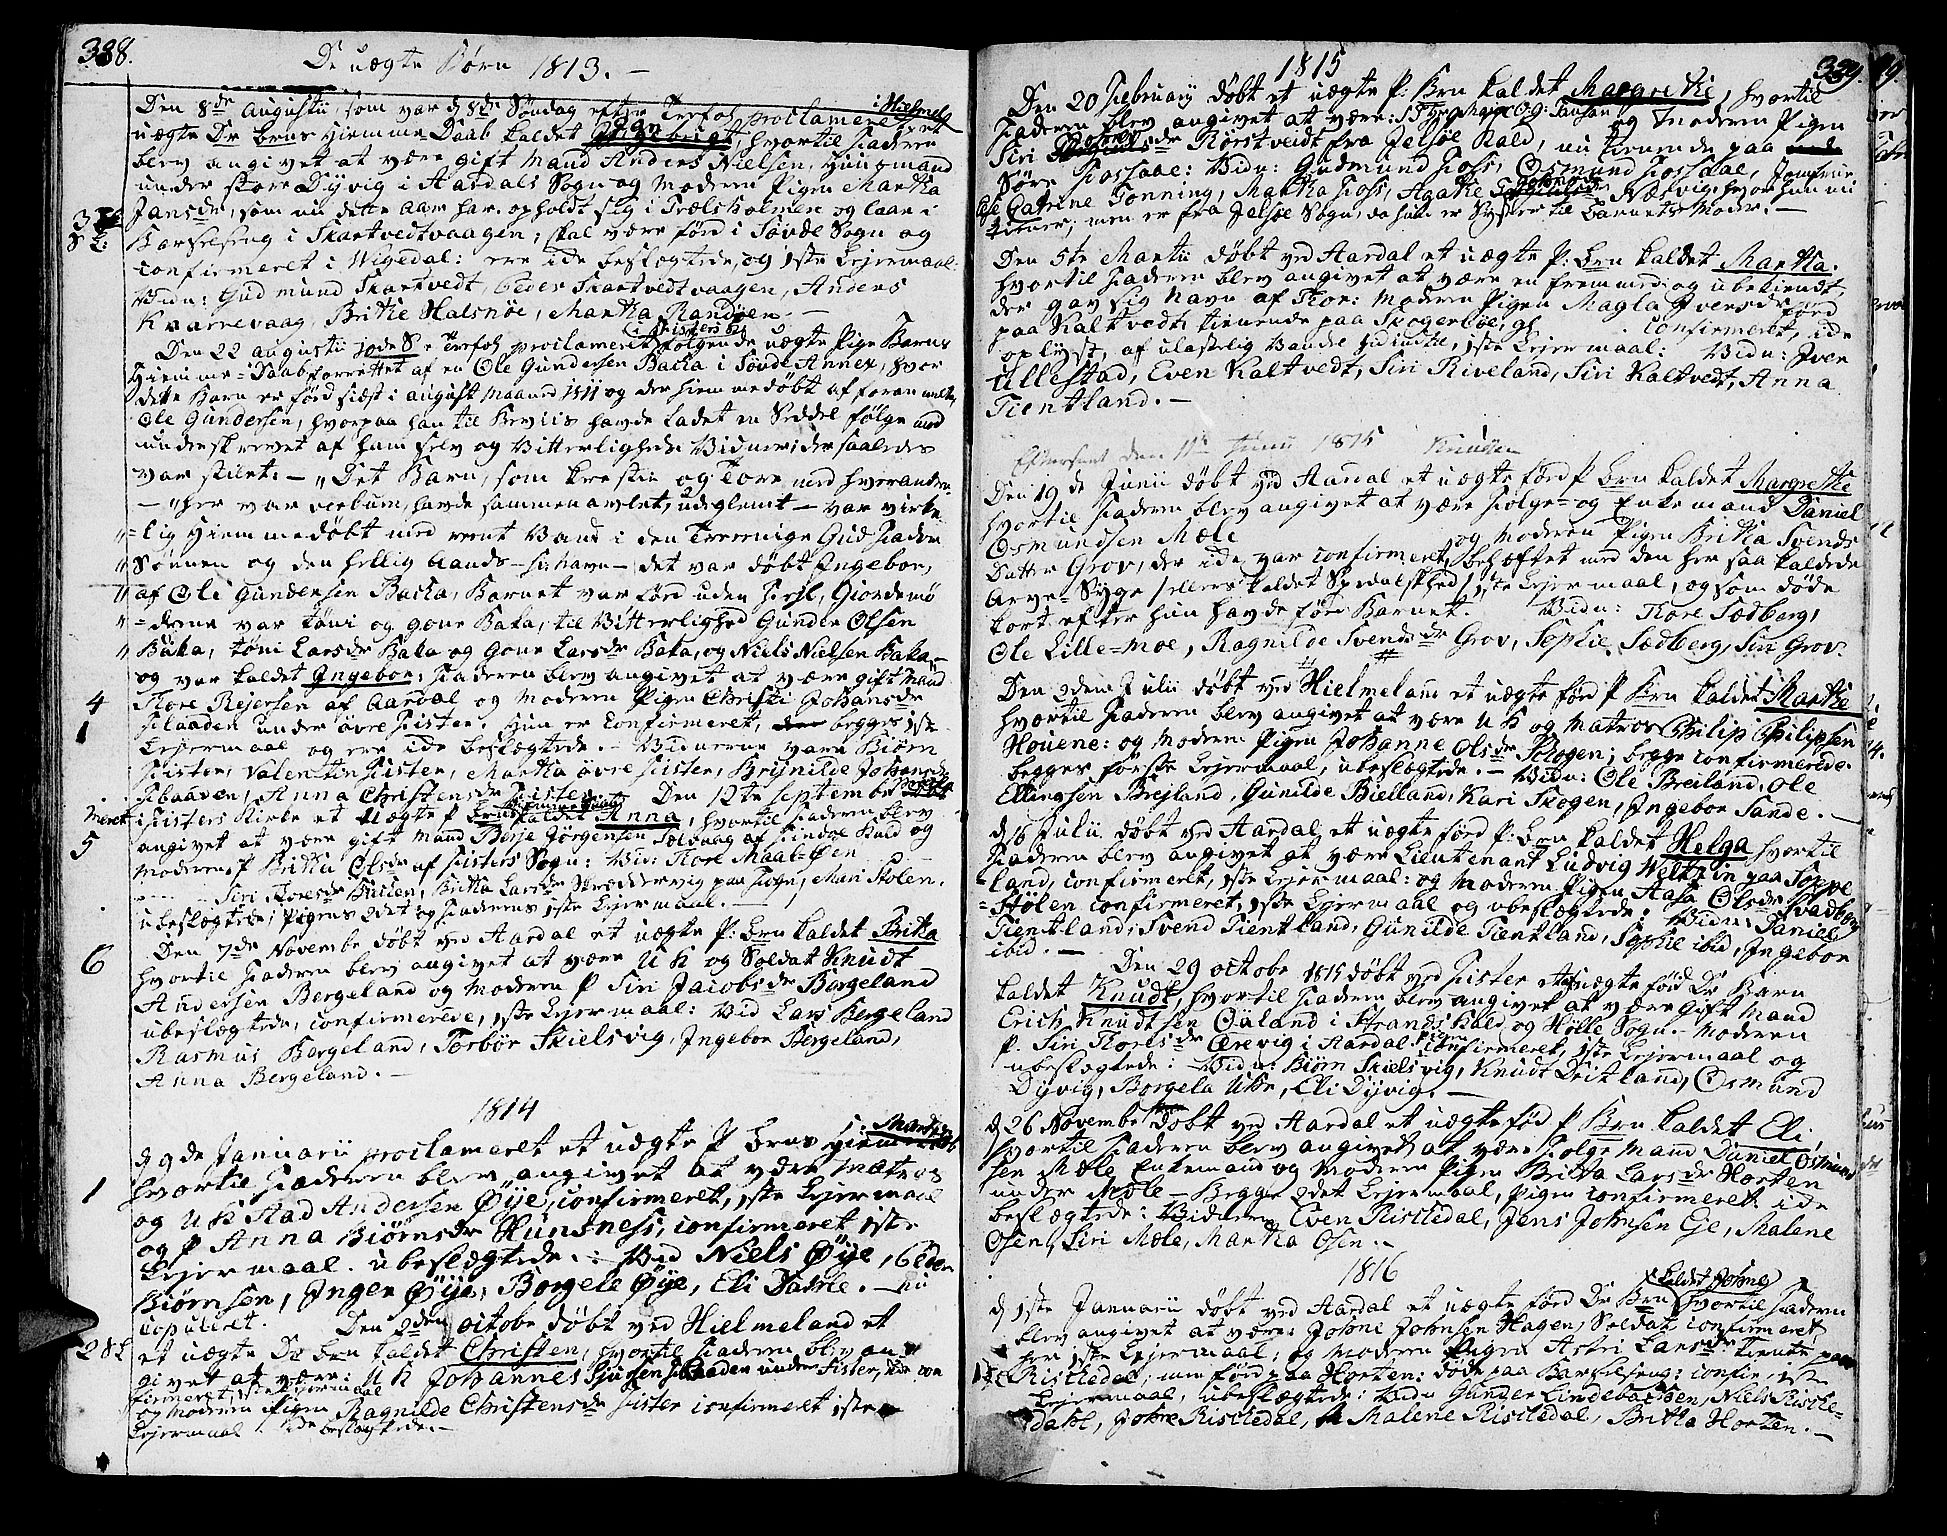 388.
De uægte Børn 1813. —
Den 8de Augustii, som var d 8de Søndag efter Trefol: proclameret i Hielmel:
uægte Dr. brns Hiemme Daab kaldet hvortil Faderen
blev angivet at være gift Mand Anders Nielsen, Huusmand
under store Dyvig i Aardals Sogn og Moderen Pigen Martha
Jansdr, som nu dette Aar har opholdt sig i Trælsholmen og laae i
Barselseng i Skartvedtvaagen; skal være førd i Søvde Sogn og
confirmeret i Wigedal: ere icke beslægtede, og 1ste Lejermaal:
Vidn: Gudmund Skartvedt, Peder Skartvedtvaagen, Anders
Kvarnevaag, Brithe Halsnøe, Martha Randøen. —
Den 22 Augustii 10de S. e Trefol: proclameret i Fisters K: følgende uægte Pige Barns
Hiemme-Daab forrettet af en Ole Gundersen Backa i Søvde Annex, hvor
dette Barn er førd sidst i August Maaned 1811 og der hiemmedøbt af foranmelte
Ole Gundersen, hvorpaa han til Beviis havde ladet en Seddel følge med
underskrevet af ham selv og Vitterligheds Vidner, der saaledes
var stilet: — „Det Barn, som Krestie og Tore med hverandre
— „her var verbum, havde sammenavlet, udeglemt — var virke
„=lig Hiemmedøbt med reent Vand i den Treenige Gud Fader
„ Sønnen og den hellig Aands — Navn — det var døbt Ingebor,
„ af Ole Gundersen Backa, Barnet var førd uden Fejl, Giordemø
„ =drene var Tøni og Gone Baka, til Vitterlighed Gunder Olsen
„ Baka, Tøni Larsdr Baka og Gone Larsdr Baka, og Niels Nielsen Baka,
og var kaldet Ingebor; Faderen blev angivet at være gift Mand
4
Tore Rejersen af Aardal og Moderen Pigen Christi Johansdr
1
Flaaden under øvre Fister. Hun er confirmeret, begges 1ste
Lejermaal og ere icke beslægtede. — Vidnerne vare Biørn
Fister, Valentin Fister, Martha øvre Fister, Brynilde Johansdr
Flaaden, Anna Christensdr Fister. Den 12te September
i Fisters Kirke et uægte P brns Hiemmedaab kaldet Anna, hvortil Faderen blev
5
angivet at være gift Mand Berje Jørgensen Solvaag af Findøe Kald og
Moderen P Britha Olsdr af Fisters Sogn: Vid: Tore Maal-Øen
Siri Toresdr Fister, Britha Larsdr Skreddervig paa Fogn, Mari Stolen.
ubeslægtede; Pigens 2det og Faderens 1ste Lejermaal. —
Den 7de Novembr døbt ved Aardal et uægte P: Brn kaldet Brita
6
hvortil Faderen blev angivet at være U K og Soldat Knudt
Andersen Bergeland og Moderen P Siri Jacobsdr Bergeland
ubeslægtede, confirmerede, 1ste Lejermaal: Vid Lars Bergeland
Rasmus Bergeland, Torbør Skielsvig, Ingebor Bergeland,
Anna Bergeland. —
1814
d 9de Januarii proclameret et uægte P brns Hiemmedaab
hvortil Faderen blev angivet at være Matros
1
og U K Aad Andersen Øye, confirmeret, 1ste Lejermaal
og P Anna Biørnsdr Hunsness, confirmeret 1ste
Lejermaal. ubeslægtede. — Vid Niels Øye, Peder
Biørnsen, Inger Øye, Borgele Øye, Eli Dahle. — nu
copuleret. Den 2den octobr døbt ved Hielmeland et
et uægte Dr brn kaldet Christen, hvortil Faderen blev an
givet at være: U K Johannes Sjursen Flaaden under Fister, con
firmeret, 1ste Lejermaal
og Moderen Pigen Ragnilde Christensdr Fister confirmeret 1ste
Lejermaal. icke beslægtede. —
1815
339.
Den 20 Februarij døbt et uægte P: Brn kaldet Margrethe, hvortil
Faderen blev angivet at være: og Moderen Pigen
Siri Rørstveidt fra Jelsøe Kald, nu tienende paa
Søre Fossaae: Vidn: Gudmund Foss, Osmund Fossaae, Jomfrue
Catrine Tonning, Martha Foss, Agathe Næsvig, hvor hun nu
tiener, men er fra Jelsøe Sogn, da hun er Syster til Barnets Moder. —
Den 5te Martii døbt ved Aardal et uægte P: brn kaldet Martha.
hvortil Faderen blev angivet at være en fremmed og ubekiendt,
der gav sig Navn af Tore: Moderen Pigen Magla Iversdr førd
paa Kaltvedt, tienende paa Skogerbøe, confirmeret, icke
oplyst, af ulastelig Vandel hidindtil, 1ste Lejermaal: Vidn: Iven
Ullestad, Even Kaltvedt, Siri Riveland, Siri Kaltvedt, Anna
Tientland. —
Efterseet den 11te Junii 1815 Knudsen
Den 19de Junii døbt ved Aardal et uægte førd P brn kaldet Margrethe
hvortil Faderen blev angivet at være Følge- og Enkemand Daniel
Osmundsen Mæle og Moderen Pigen Britha Svends
Datter Grov, der icke var confirmeret, behæftet med den her saa kaldede
Arve-Syge /: ellers kaldet Spedalskhed :/ 1ste Lejermaal, og som døde
kort efter hun havde fød Barnet. Vidn: Tore Sædberg,
Ole Lille-Moe, Ragnilde Svendsdr Grov, Sophie Sædberg, Siri Grov.
Den 2den Julii døbt ved Hielmeland et uægte førd P Brn kaldet Marthe
hvortil Faderen blev angivet at være U K og Matros Philip Philipsen
Houene: og Moderen Pigen Johanne Olsdr Skogen; begge confirmerede.
begges første Lejermaal, ubeslægtede. — Vidn: Ole Breiland, Ole
Ellingsen Brejland, Gunilde Bielland, Kari Skogen, Ingebor Sande. —
d 16 Julii døbt ved Aardal et uægte førd P: brn kaldet Helga hvortil
Faderen blev angivet at være Lieutenant Ludvig Weltzin paa Soppe
=land, confirmeret, 1ste Lejermaal: og Moderen Pigen Aasa Olsdr Svadberg
=Stølen confirmeret, 1ste Lejermaal og ubeslægtede: Vidn: Daniel
Tientland, Svend Tientland, Gunilde Tientland, Sophie ibid, Ingebor
ibid. —
Den 29 octobr 1815 døbt ved Fister et uægte fød Dr Barn
kaldet Knudt, hvortil Faderen blev angivet at være Gift Mand
Erich Knudtsen Øaland i Strands Kald og Hølle Sogn. — Moderen
P. Siri Toresdr Ørevig i Aardal Pigen confirmeret, 1ste Lejermaal og
ubeslægtede: Vidn: Biørn Skielsvig, Knudt Veitland, Osmund
Dyvig, Borgela Ullse, Eli Dyvig. —
d 26 Novembr døbt ved Aardal et uægte fød P Brn kaldet Eli
hvortil Faderen blev angivet at være Følge Mand Daniel Osmund
sen Mæle Enkemand og Moderen Pigen Britha Larsdr Horten
under Mæle — Begges 2det Lejermaal, Pigen confirmeret. icke
beslægtede: Vidnere Even Riskedal, Jens Johnsen Eje, Malene
Osen, Siri Mæle, Martha Osen. —
1816
d 1ste Januarii døbt ved Aardal et uægte førd Dr Brn kaldet Johne, hvortil Faderen
blev angivet at være: Johne Johnsen Hagen, Soldat confirmeret
her 1ste Lejermaal; og Moderen Pigen Astri Larsdr tiente paa
Riskedal, men førd paa Horten: døde paa Barselseng: confir, 1ste
Lejermaal, ubeslægtede: Vidn Gunder Lindebacken, Niels Riske=
dahl, Johne Riskedal, Malene Riskedal, Britha Horten. —